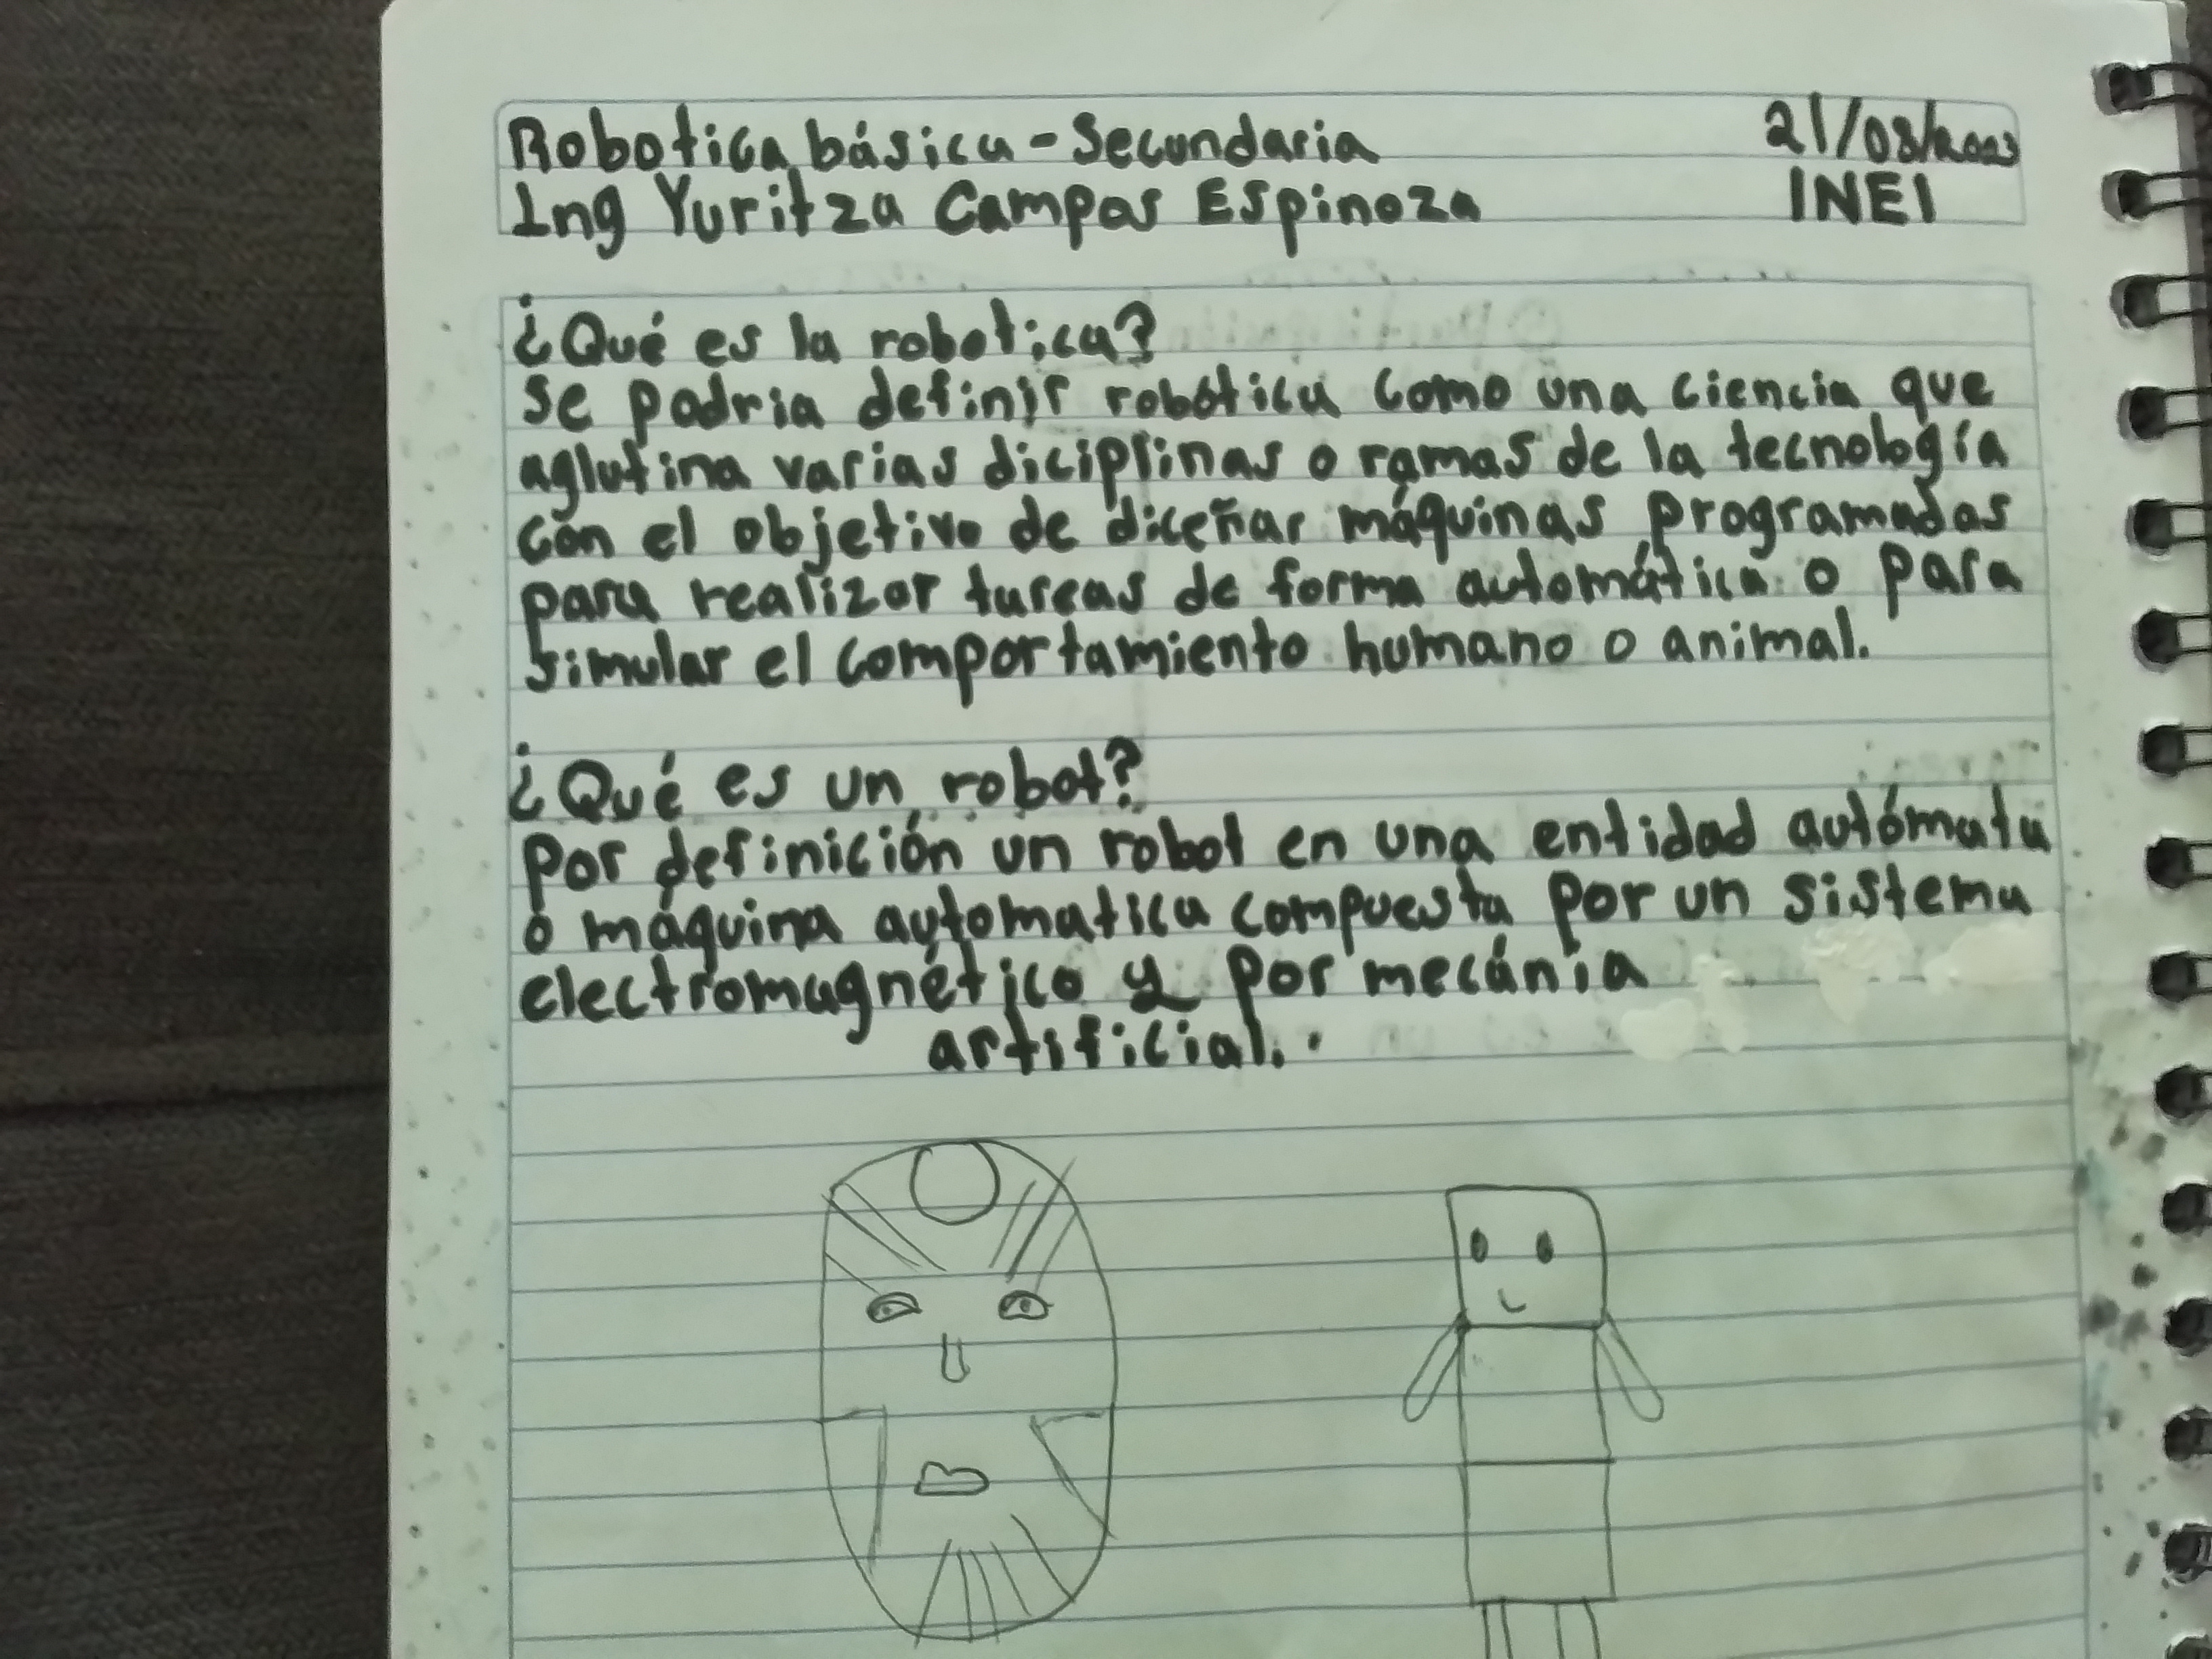 Robotica básica - Secundaria 21/08/2023
Ing Yuritza Campos Espinoza INEI
¿Qué es la robotica?
se podria definir robótica como una ciencia que
aglutina varias diciplinas o ramas de la tecnología
con el objetivo de diceñar máquinas programadas
para realizar tareas de forma automática o para
simular el comportamiento humano o animal.
¿Qué es un robot?
por definición un robot en una entidad autómata
o máquina automatica compuesta por un sistema
electromagnético y por mecánia
artificial..